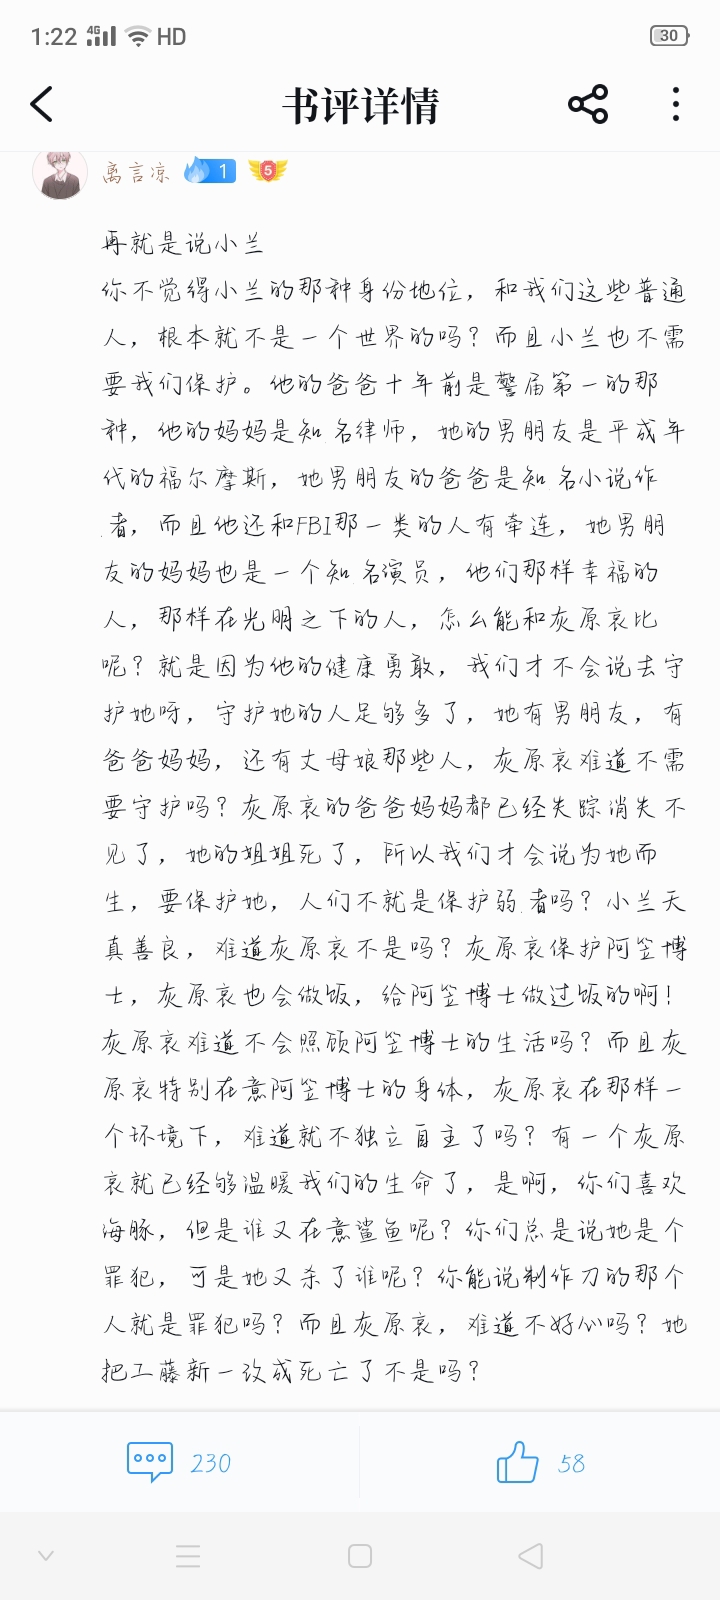 1:22 4G HD 30
书评详情
离言凉 1 5
再就是说小兰
你不觉得小兰的那种身份地位，和我们这些普通
人，根本就不是一个世界的吗？而且小兰也不需
要我们保护。他的爸爸十年前是警届第一的那
种，他的妈妈是知名律师，她的男朋友是平成年
代的福尔摩斯，她男朋友的爸爸是知名小说作
者，而且他还和FBI那一类的人有牵连，她男朋
友的妈妈也是一个知名演员，他们那样幸福的
人，那样在光明之下的人，怎么能和灰原哀比
呢？就是因为他的健康勇敢，我们才不会说去守
护她呀，守护她的人足够多了，她有男朋友，有
爸爸妈妈，还有丈母娘那些人，灰原哀难道不需
要守护吗？灰原哀的爸爸妈妈都已经失踪消失不
见了，她的姐姐死了，所以我们才会说为她而
生，要保护她，人们不就是保护弱者吗？小兰天
真善良，难道灰原哀不是吗？灰原哀保护阿笠博
士，灰原哀也会做饭，给阿笠博士做过饭的啊！
灰原哀难道不会照顾阿笠博士的生活吗？而且灰
原哀特别在意阿笠博士的身体，灰原哀在那样一
个环境下，难道就不独立自主了吗？有一个灰原
哀就已经够温暖我们的生命了，是啊，你们喜欢
海豚，但是谁又在意鲨鱼呢？你们总是说她是个
罪犯，可是她又杀了谁呢？你能说制作刀的那个
人就是罪犯吗？而且灰原哀，难道不好心吗？她
把工藤新一改成死亡了不是吗？
230 58